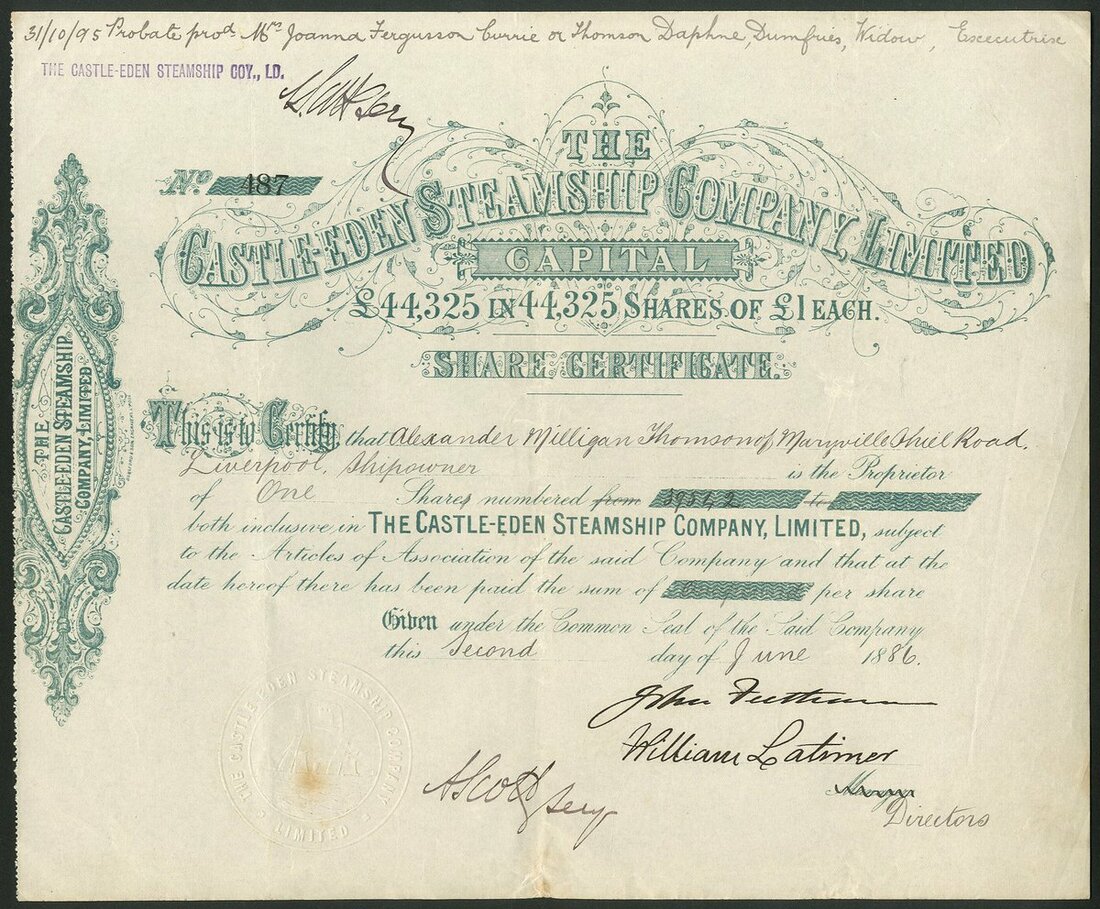 31/10/95 Probate prod Mrs Joanna Fergusson Currie or Thomson Daphne, Dumfries, Widow, Executrix
THE CASTLE-EDEN STEAMSHIP COY., LD.
No. 487
THE
CASTLE-EDEN STEAMSHIP COMPANY, LIMITED
CAPITAL
£44,325 IN 44,325 SHARES OF £1 EACH.
SHARE CERTIFICATE.
THE
CASTLE-EDEN STEAMSHIP
COMPANY, LIMITED
This is to Certify that Alexander Milligan Thomson of Maryville Shiel Road,
Liverpool, Shipowner is the Proprietor
of One Shares numbered from to
both inclusive in THE CASTLE-EDEN STEAMSHIP COMPANY, LIMITED, subject
to the Articles of Association of the said Company and that at the
date hereof there has been paid the sum of per share
Given under the Common Seal of the Said Company
this Second day of June 1886.
John
William Latimer
A Scott Secy
Directors
THE CASTLE EDEN STEAMSHIP COMPANY
LIMITED